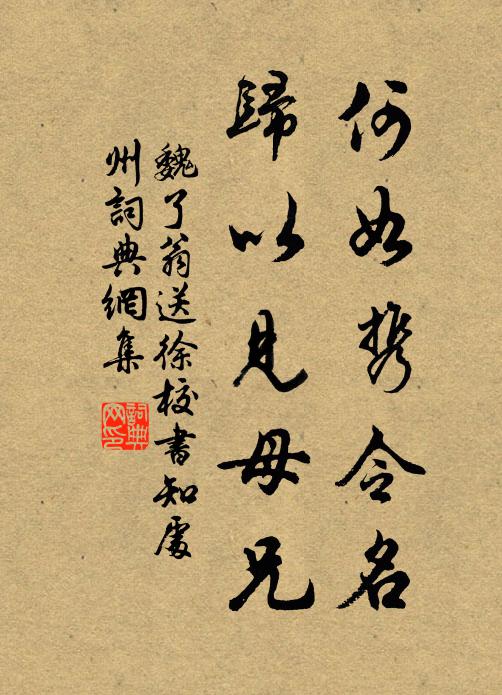 何如携令名
歸以見母兄
魏了翁送徐校書知處
州詞典網集
詞典
网印